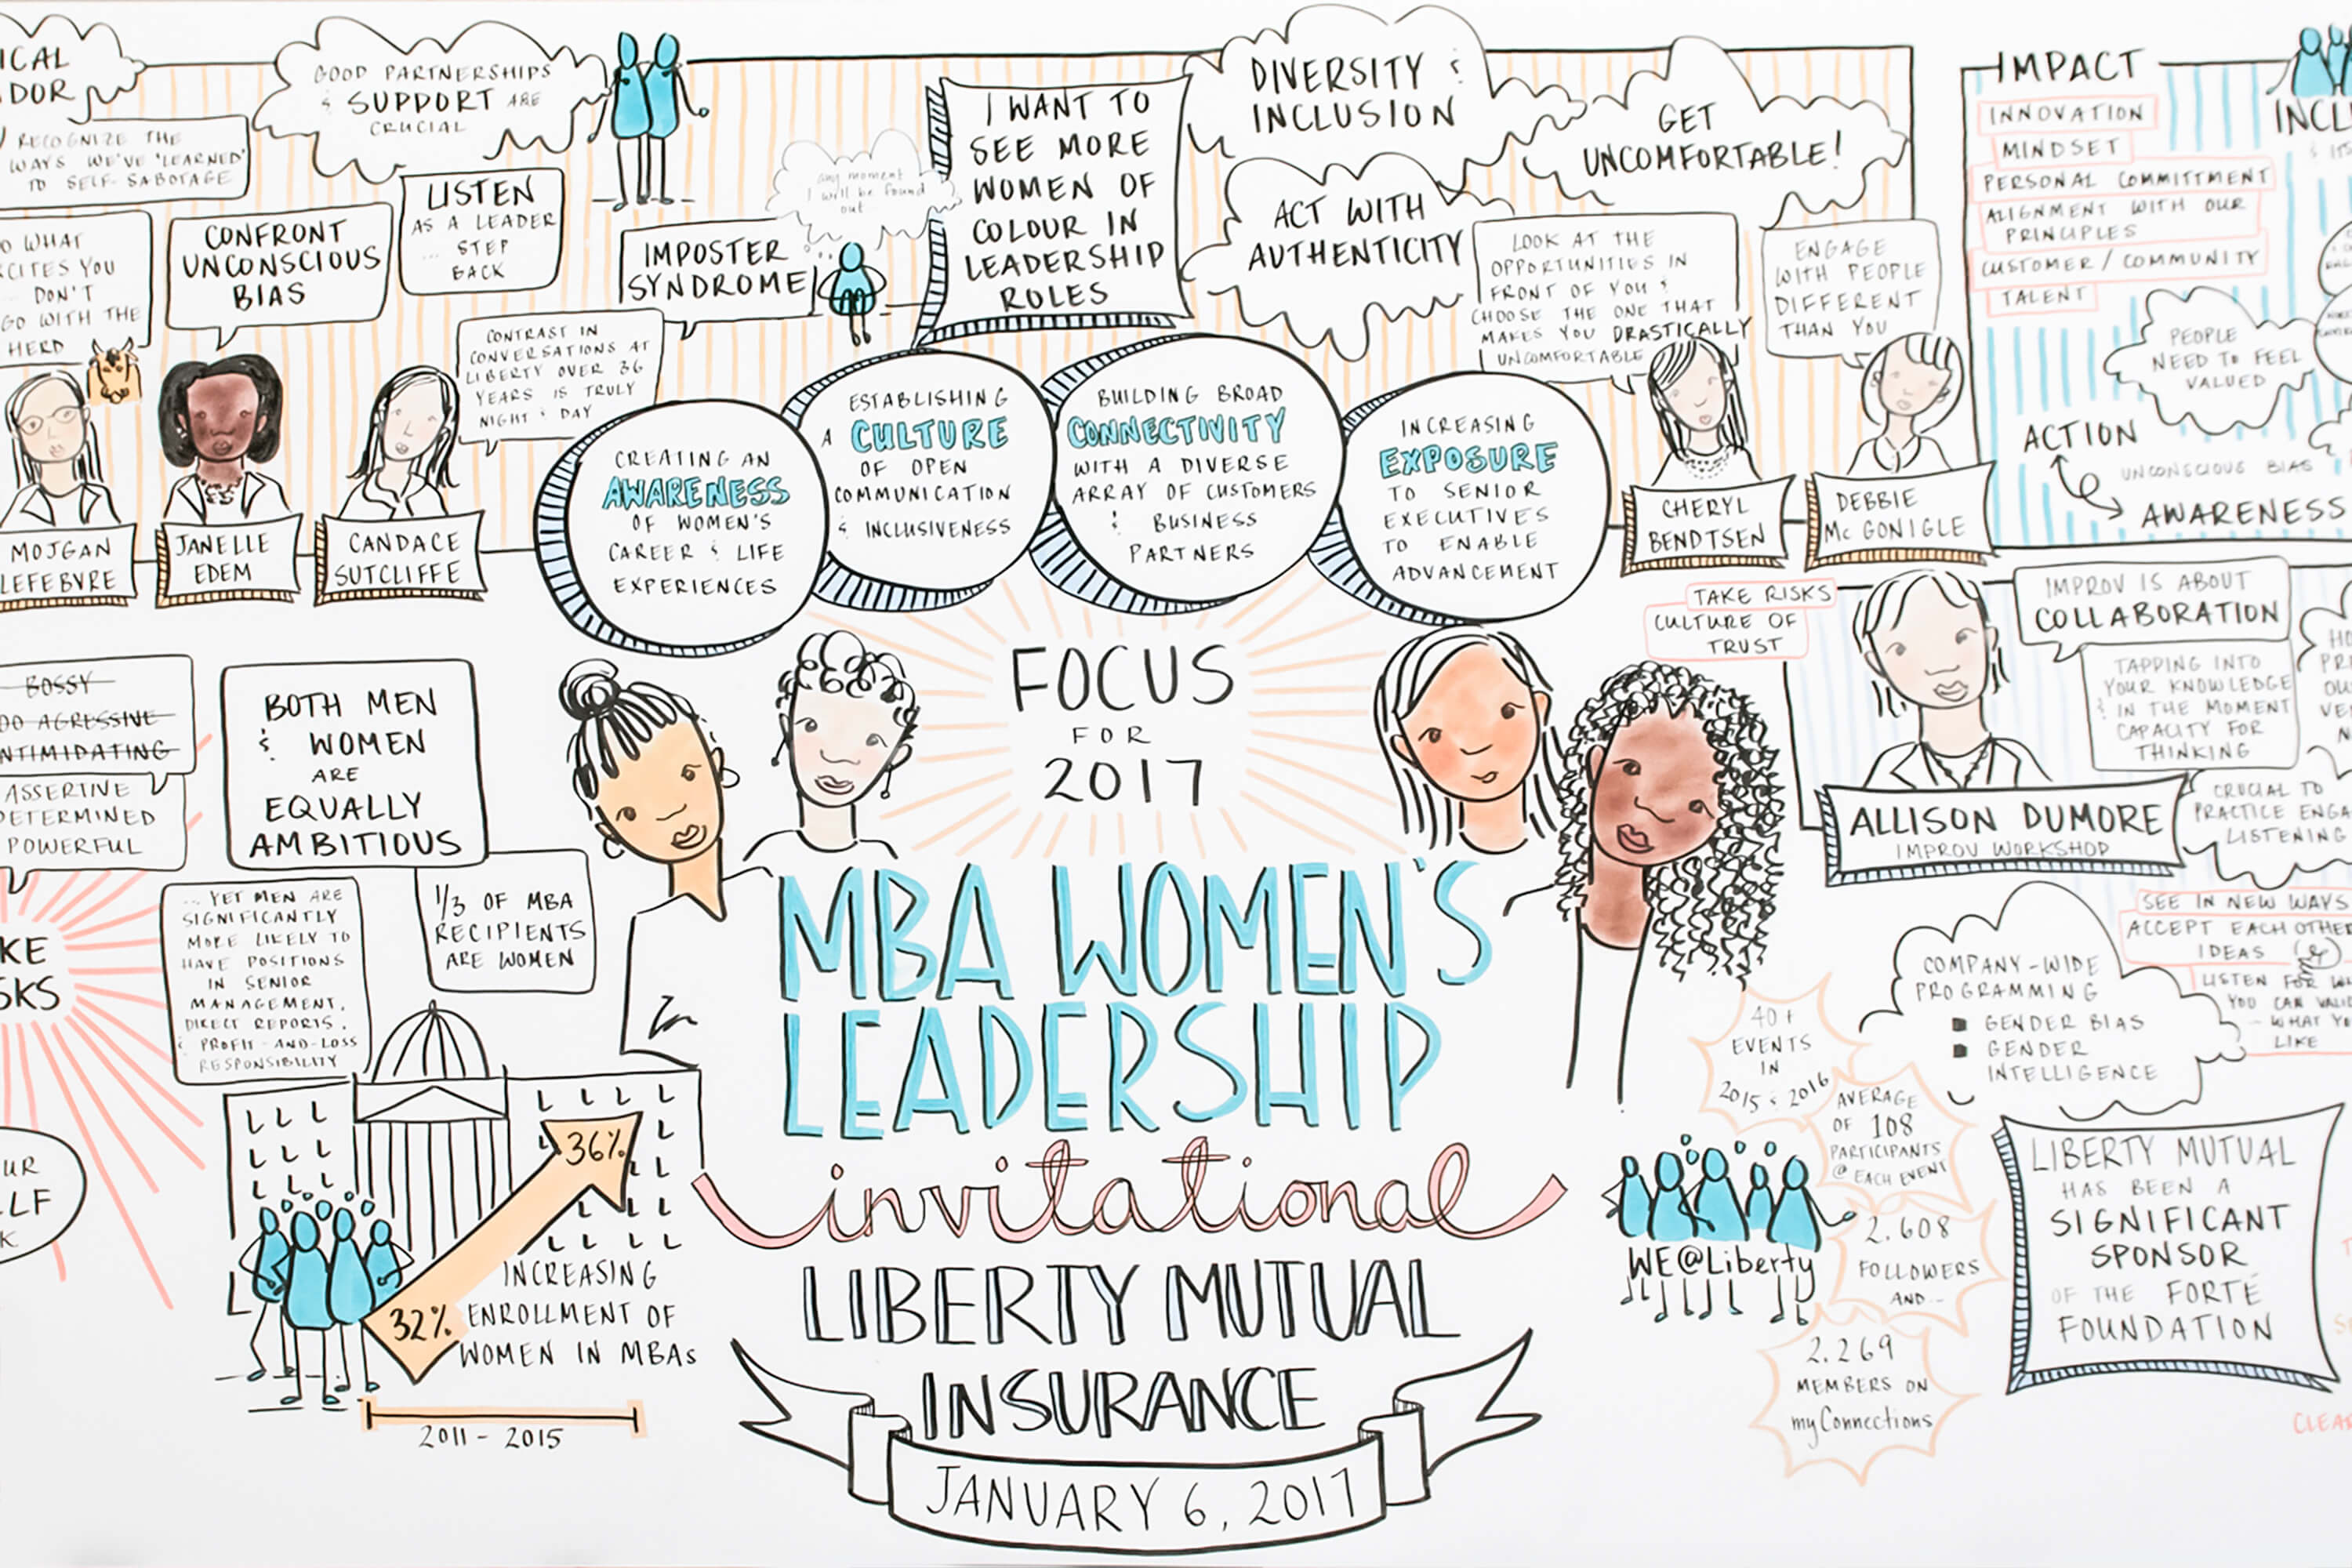 ICAL
DOR
RECOGNIZE THE
WAYS WE'VE 'LEARNED'
TO SELF-SABOTAGE
GOOD PARTNERSHIPS
& SUPPORT ARE
CRUCIAL
O WHAT
CITES YOU
... DON'T
GO WITH THE
HERD
CONFRONT
UNCONSCIOUS
BIAS
LISTEN
AS A LEADER
... STEP
BACK
CONTRAST IN
CONVERSATIONS AT
LIBERTY OVER 36
YEARS IS TRULY
NIGHT & DAY
IMPOSTER
SYNDROME
any moment
I will be found
out...
I WANT TO
SEE MORE
WOMEN OF
COLOUR IN
LEADERSHIP
ROLES
DIVERSITY &
INCLUSION
ACT WITH
AUTHENTICITY
GET
UNCOMFORTABLE!
LOOK AT THE
OPPORTUNITIES IN
FRONT OF YOU &
CHOOSE THE ONE THAT
MAKES YOU DRASTICALLY
UNCOMFORTABLE
ENGAGE
WITH PEOPLE
DIFFERENT
THAN YOU
MOJGAN
LEFEBVRE
JANELLE
EDEM
CANDACE
SUTCLIFFE
CREATING AN
AWARENESS
OF WOMEN'S
CAREER & LIFE
EXPERIENCES
ESTABLISHING
A CULTURE
OF OPEN
COMMUNICATION
& INCLUSIVENESS
BUILDING BROAD
CONNECTIVITY
WITH A DIVERSE
ARRAY OF CUSTOMERS
& BUSINESS
PARTNERS
INCREASING
EXPOSURE
TO SENIOR
EXECUTIVES
TO ENABLE
ADVANCEMENT
CHERYL
BENDTSEN
DEBBIE
McGONIGLE
IMPACT
INNOVATION
MINDSET
PERSONAL COMMITTMENT
ALIGNMENT WITH OUR
PRINCIPLES
CUSTOMER / COMMUNITY
TALENT
INCL
& ITS
PEOPLE
NEED TO FEEL
VALUED
ACTION
UNCONSCIOUS BIAS
AWARENESS
BOSSY
OO AGRESSIVE
NTIMIDATING
ASSERTIVE
DETERMINED
POWERFUL
BOTH MEN
& WOMEN
ARE
EQUALLY
AMBITIOUS
... YET MEN ARE
SIGNIFICANTLY
MORE LIKELY TO
HAVE POSITIONS
IN SENIOR
MANAGEMENT,
DIRECT REPORTS,
& PROFIT-AND-LOSS
RESPONSIBILITY
1/3 OF MBA
RECIPIENTS
ARE WOMEN
KE
SKS
UR
LF
K
LLL
LLLL
LLL
L
LLL
L
LL
LLL
LLLL
L
36%
32%
INCREASING
ENROLLMENT OF
WOMEN IN MBAs
2011 - 2015
FOCUS
FOR
2017
MBA WOMEN'S
LEADERSHIP
invitational
LIBERTY MUTUAL
INSURANCE
JANUARY 6, 2017
TAKE RISKS
CULTURE OF
TRUST
ALLISON DUMORE
IMPROV WORKSHOP
IMPROV IS ABOUT
COLLABORATION
TAPPING INTO
YOUR KNOWLEDGE
& IN THE MOMENT
CAPACITY FOR
THINKING
HO
PRI
OU
VE
N
CRUCIAL TO
PRACTICE ENGA
LISTENING
SEE IN NEW WAYS
ACCEPT EACH OTHER
IDEAS
LISTEN FOR
YOU CAN VALID
- WHAT YO
LIKE
COMPANY-WIDE
PROGRAMMING
GENDER BIAS
GENDER
INTELLIGENCE
40+
EVENTS
IN
2015 & 2016
AVERAGE
OF 108
PARTICIPANTS
@ EACH EVENT
2,608
FOLLOWERS
AND...
2,269
MEMBERS ON
myConnections
WE@Liberty
LIBERTY MUTUAL
HAS BEEN A
SIGNIFICANT
SPONSOR
OF THE FORTÉ
FOUNDATION
CLEA